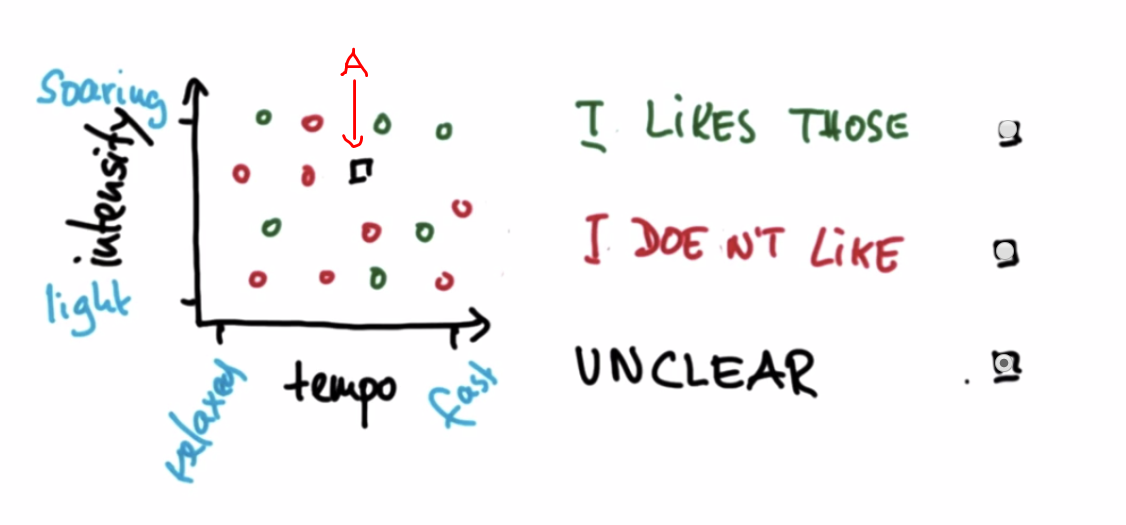 A
Soaring
intensity
light
relaxed
tempo
fast
I LIKES THOSE
I DOEN'T LIKE
UNCLEAR